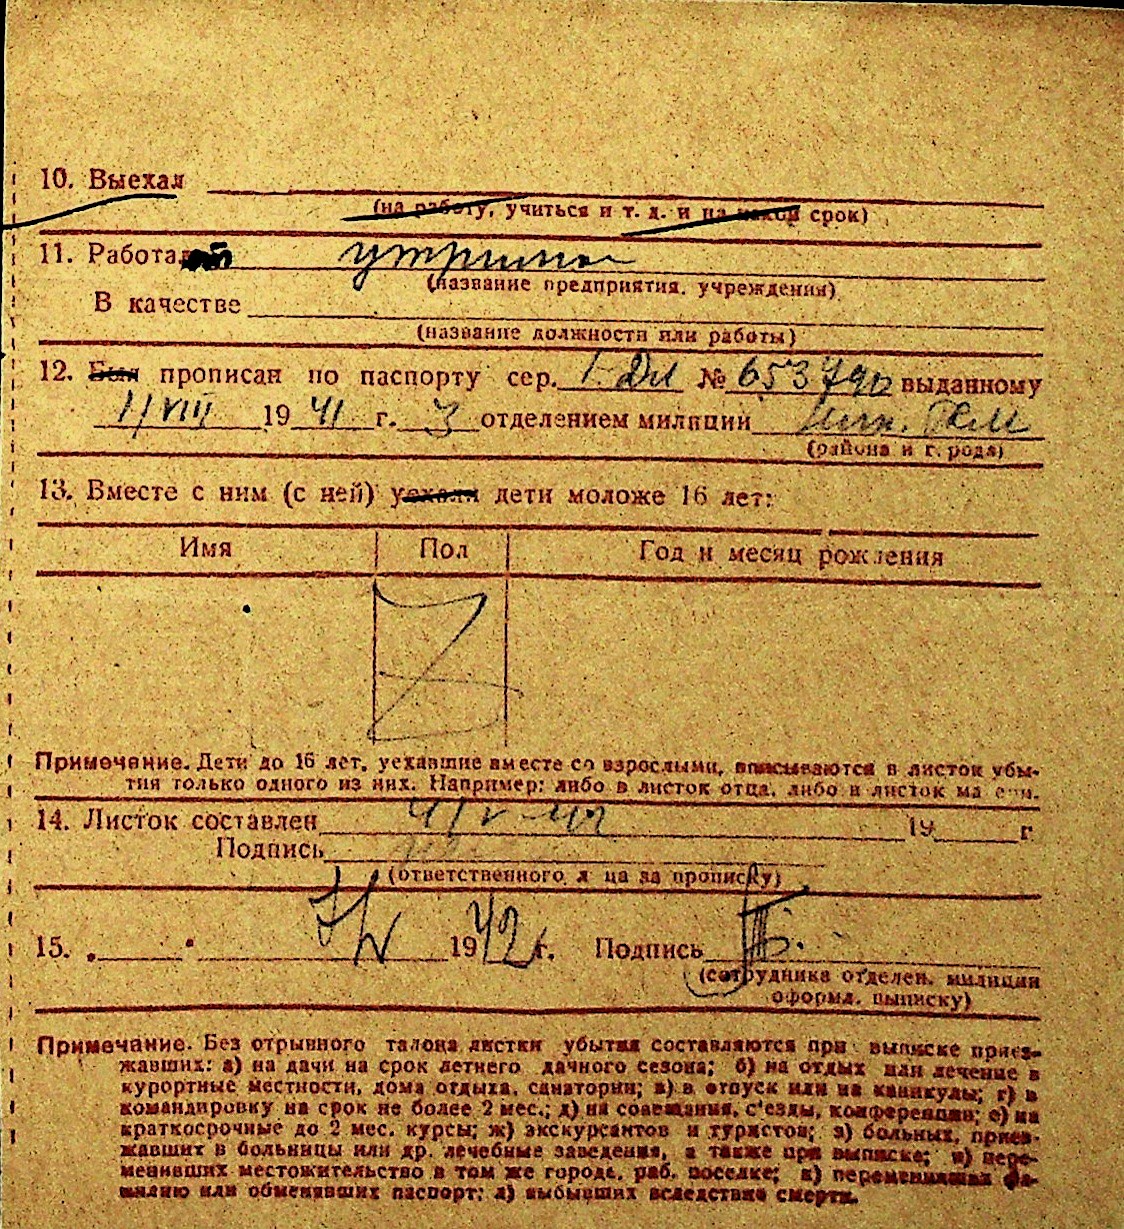 10. Выехал
(на работу, учиться и т. д. и на какой срок)
11. Работал
(название предприятия, учреждения)
В качестве
(название должности или работы)
12. Был прописан по паспорту сер. № 653790 выданному
11/VIII 19 41 г. 3 отделением милиции
(района и города)
13. Вместе с ним (с ней) уехали дети моложе 16 лет:
Имя Пол Год и месяц рождения
Примечание. Дети до 16 лет, уехавшие вместе со взрослыми, вписываются в листок убы-
тия только одного из них. Например: либо в листок отца, либо в листок матери.
14. Листок составлен 4/V-42 19 г
Подпись
(ответственного лица за прописку)
15. „ " 19 42 г. Подпись
(сотрудника отделен. милиции
оформл. выписку)
Примечание. Без отрывного талона листки убытия составляются при выписке приез-
жавших: а) на дачи на срок летнего дачного сезона; б) на отдых или лечение в
курортные местности, дома отдыха, санатории; в) в отпуск или на каникулы; г) в
командировку на срок не более 2 мес.; д) на совещания, с'езды, конференции; е) на
краткосрочные до 2 мес. курсы; ж) экскурсантов и туристов; з) больных, приез-
жавших в больницы или др. лечебные заведения, а также при выписке; и) пере-
менивших местожительство в том же городе, раб. поселке; к) переменивших фа-
милию или обменявших паспорт; л) выбывших вследствие смерти.